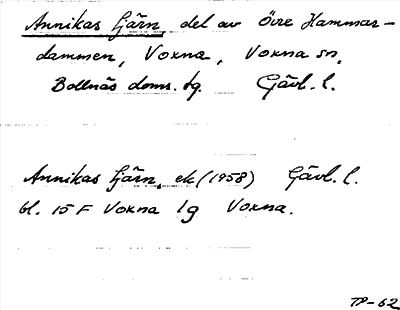 Annikas tjärn, del av Övre Hammar-
dammen, Voxna, Voxna sn,
Bollnäs doms. tg. Gävl. l.
Annikas tjärn, ek (1958) Gävl. l.
bl. 15 F Voxna lg Voxna.
TP-62